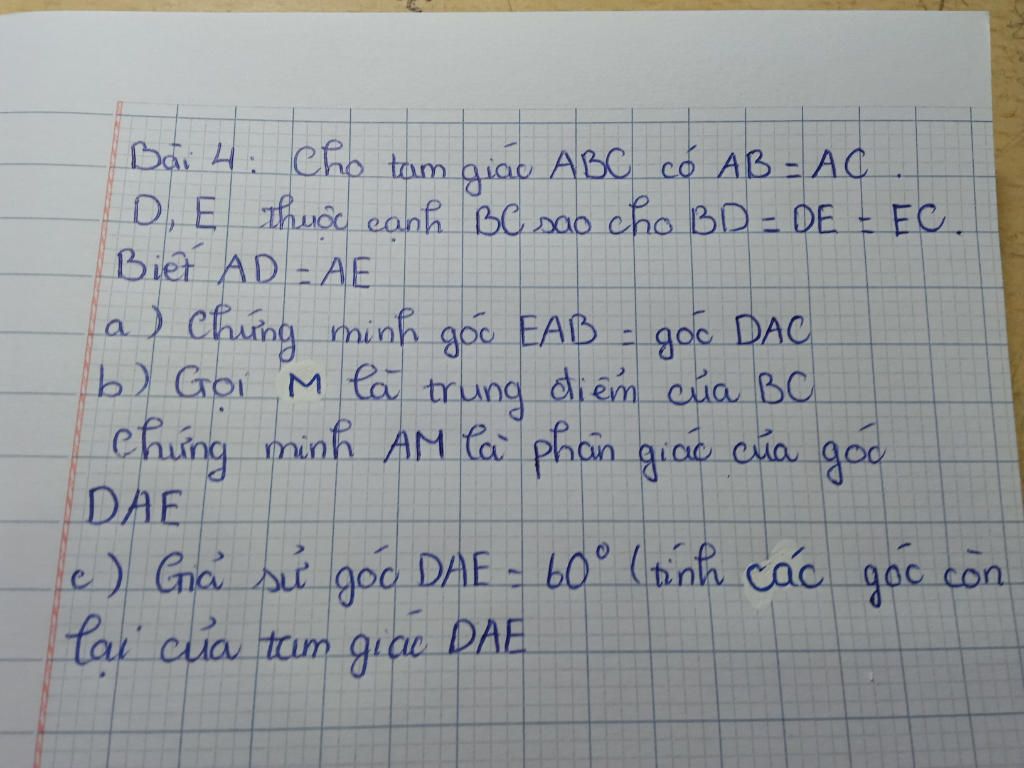 Bài 4: Cho tam giác ABC có AB = AC.
D, E thuộc cạnh BC sao cho BD = DE = EC.
Biết AD = AE
a) Chứng minh góc EAB = góc DAC
b) Gọi M là trung điểm của BC
Chứng minh AM là phân giác của góc
DAE
c) Giả sử góc DAE = 60° (tính các góc còn
lại của tam giác DAE